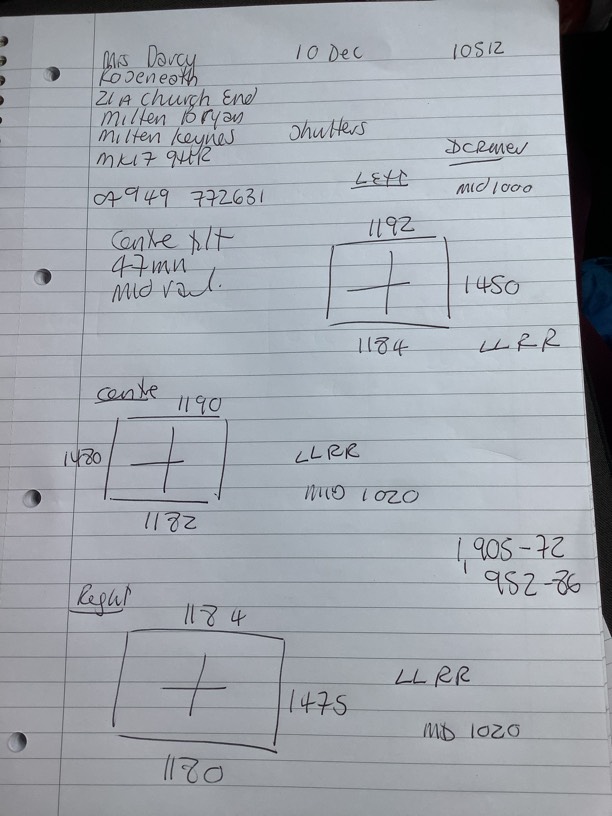 Mrs Darcy 10 Dec 10512
Roseneath
21A Church End
Milten Bryan
Milten Keynes Shutters
MK17 9HR
07949 772631 LEFT MID 1000
Centre tilt 1192
47mm
Mid rail. 1450
1184 LLRR
Centre 1190
1480 LLRR
MID 1020
1182
1,905-72
952-86
Right
1184
LLRR
1475
MID 1020
1180